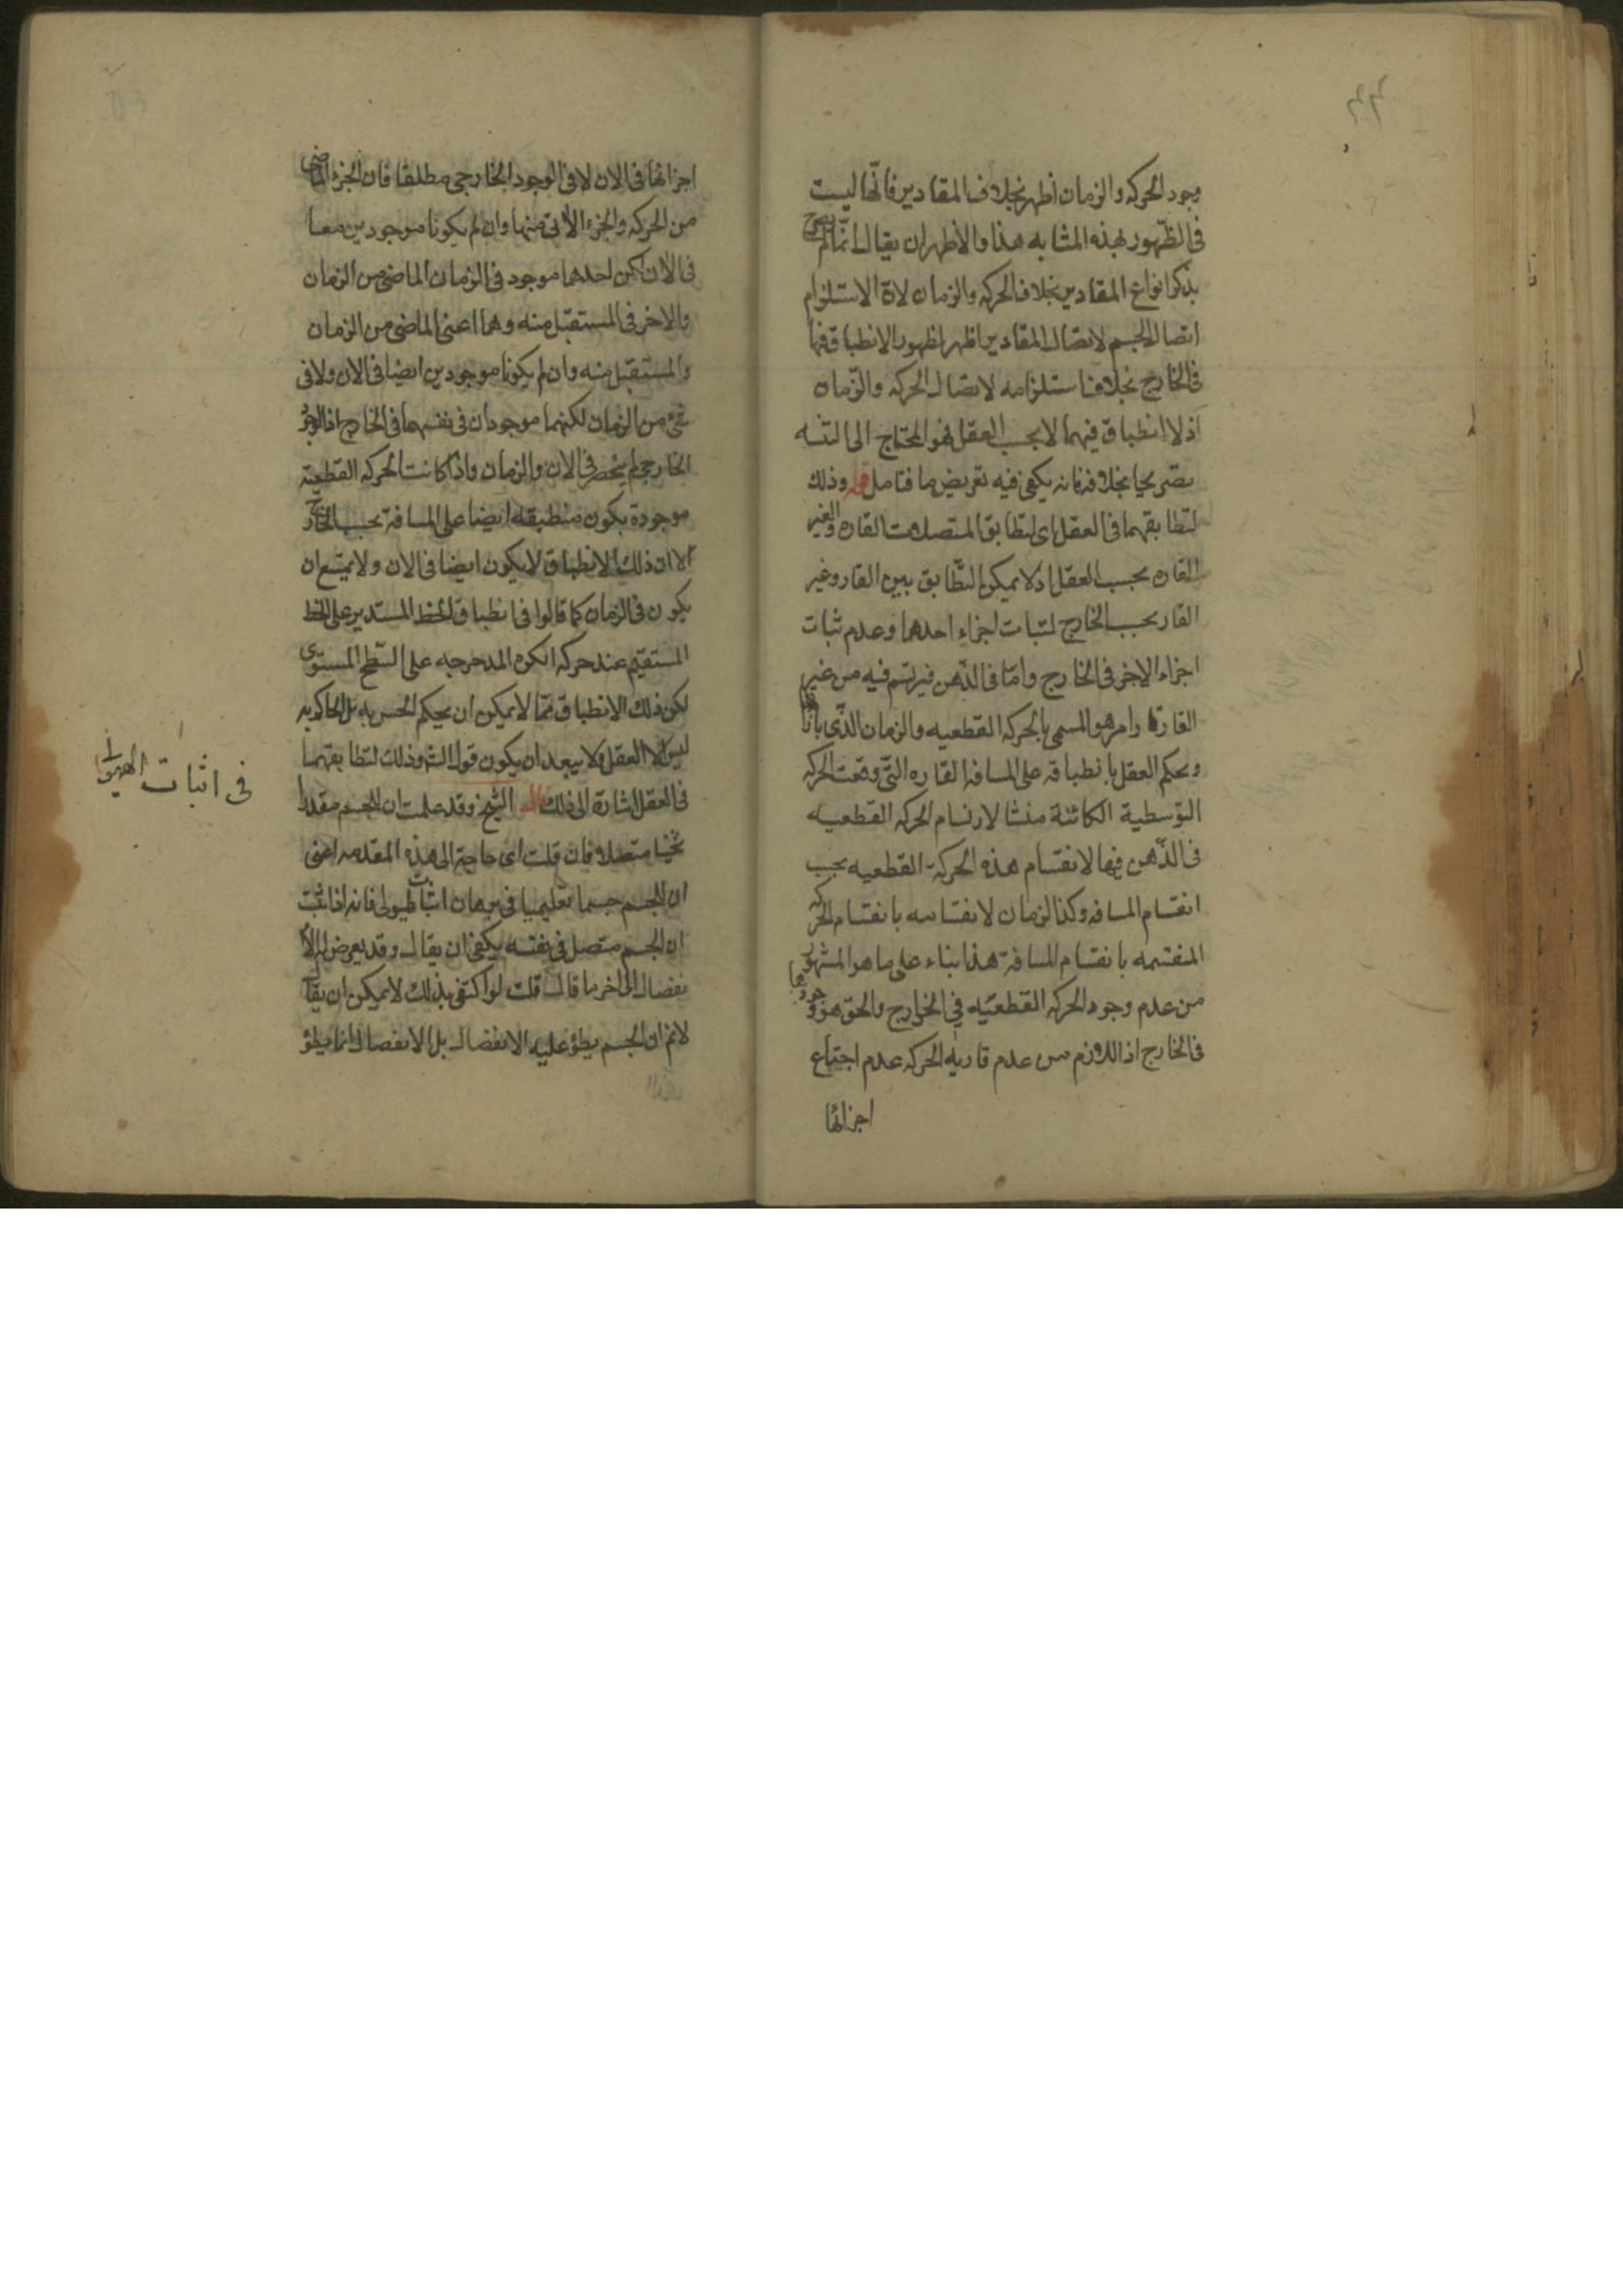 وجود الحركه والزمان أظهر بخلاف المقادير فانّها ليست
فى الظّهور بهذه المثابه هذا والأظهران يقال انّما لم يصرح
بذكر انواع المقادير بخلاف الحركه والزمان لان الاستلزام
اتصال الجسم لاتصال المقادير اظهر لظهور الانطباق فيها
فى الخارج بخلاف استلزامه لاتصال الحركه والزّمان
اذ لا انطباق فيهما الا بحسب العقل فهو المحتاج الى
تصريحا بخلافه فانه يكفى فيه تعريض ما فتامل قوله وذلك
لتطابقهما فى العقل اى لتطابق المتصلات القاره والغير
القاره بحسب العقل اذ لا يمكن التّطابق بين القار وغير
القار بحسب الخارج لثبات اجزاء احدهما وعدم ثبات
اجزاء الاخر فى الخارج وامّا فى الذّهن فيرتسم فيه من غير
القار امر هو المسمى بالحركه القطعيه والزمان الذّى
ويحكم العقل بانطباقه على المسافه القاره التّى وقعت الحركه
التوسطية الكائنة منشا لارتسام الحركه القطعيه
فى الذّهن فيها لانقسام هذه الحركة القطعيه بحسب
انقسام المسافه وكذا الزمان لانقسامه بانقسام الحركه
المنقسمه بانقسام المسافة هذا بناء على ما هو المشهور
من عدم وجود الحركه القطعيّه في الخارج والحقّ هو وجودها
فى الخارج اذ اللازم من عدم قاريه الحركه عدم اجتماع
اجزائها
اجزائها فى الان لا فى الوجود الخارجى مطلقا فان الجزء الماضى
من الحركه والجزء الأتى منها وان لم يكونا موجودين معا
فى الان لكن احدهما موجود فى الزمان الماضى من الزمان
والاخر فى المستقبل منه وهما اعنى الماضى من الزمان
والمستقبل منه وان لم يكونا موجودين ايضا فى الان ولا فى
شىء من الزمان لكنهما موجودان فى نفسهما فى الخارج اذ الوجود
الخارجى لم ينحصر فى الان والزمان واذا كانت الحركه القطعية
موجودة يكون منطبقه ايضا على المسافة بحسب الخارج
الا ان ذلك الانطباق لا يكون ايضا فى الان ولا يمتنع ان
يكون فى الزمان كما قالوا فى انطباق الخط المستدير على الخط
المستقيم عند حركه الكره المدحرجه على السّطح المستوى
لكن ذلك الانطباق ممّا لا يمكن ان يحكم الحس به بل الحاكم به
ليس الا العقل ولا يبعد ان يكون قول الش وذلك لتطابقهما
فى العقل اشارة الى ذلك قال الشيخ وقد علمت ان للجسم مقدارا
ثخينا متصلا فان قلت اى حاجة الى هذه المقدمه اعنى
ان للجسم جسما تعليميا فى برهان اثبات الهيولى فانه اذا ثبت
ان الجسم متصل فى نفسه يكفى ان يقال وقد يعرض له الا
نفصال الى اخر ما قال قلت لو اكتفى بذلك لا يمكن ان يقال
لانم ان الجسم يطرؤ عليه الانفصال بل الانفصال انما يطرؤ
فى اثبات الهيولى